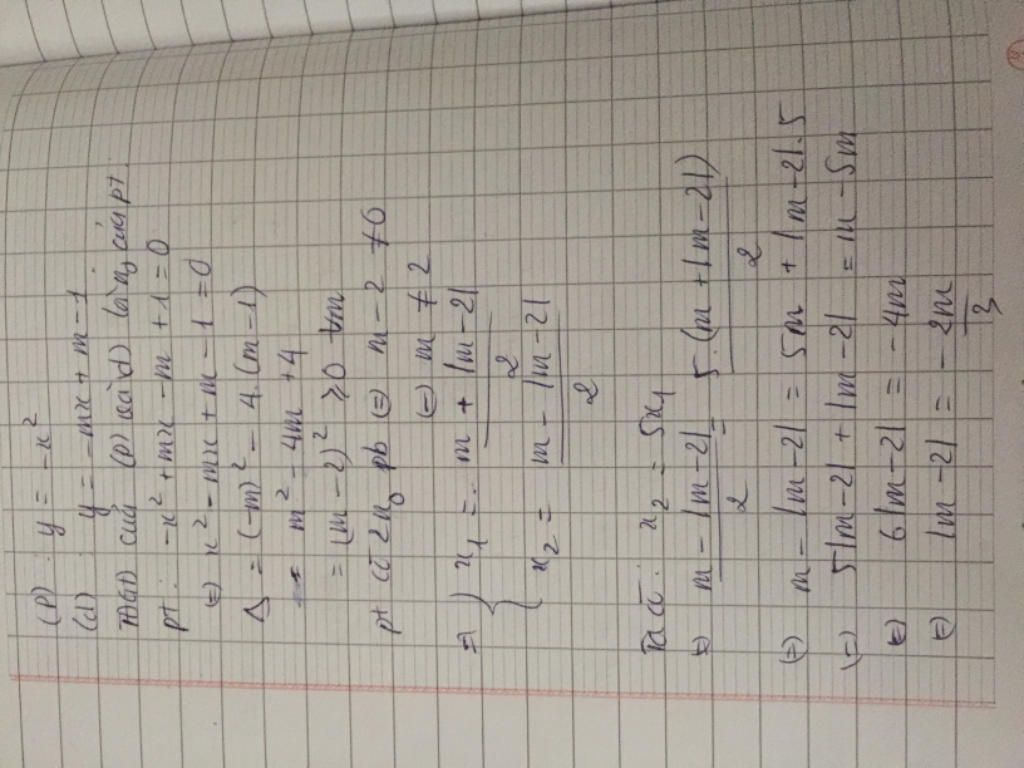 (P) : y = -x²
(d) : y = -mx + m - 1
HĐGĐ của (P) và (d) là ng của pt
pt : -x² + mx - m + 1 = 0
(=) x² - mx + m - 1 = 0
Δ = (-m)² - 4.(m-1)
= m² - 4m + 4
= (m-2)² ≥ 0 ∀m
pt có 2 n₀ pb (=) m - 2 ≠ 0
(=) m ≠ 2
=> { x₁ = m + |m-2| / 2
x₂ = m - |m-2| / 2
Ta có : x₂ = 5x₁
(=) m - |m-2| / 2 = 5.(m + |m-2|) / 2
(=) m - |m-2| = 5m + |m-2|.5
(=) 5|m-2| + |m-2| = m - 5m
(=) 6|m-2| = -4m
(=) |m-2| = -2m / 3